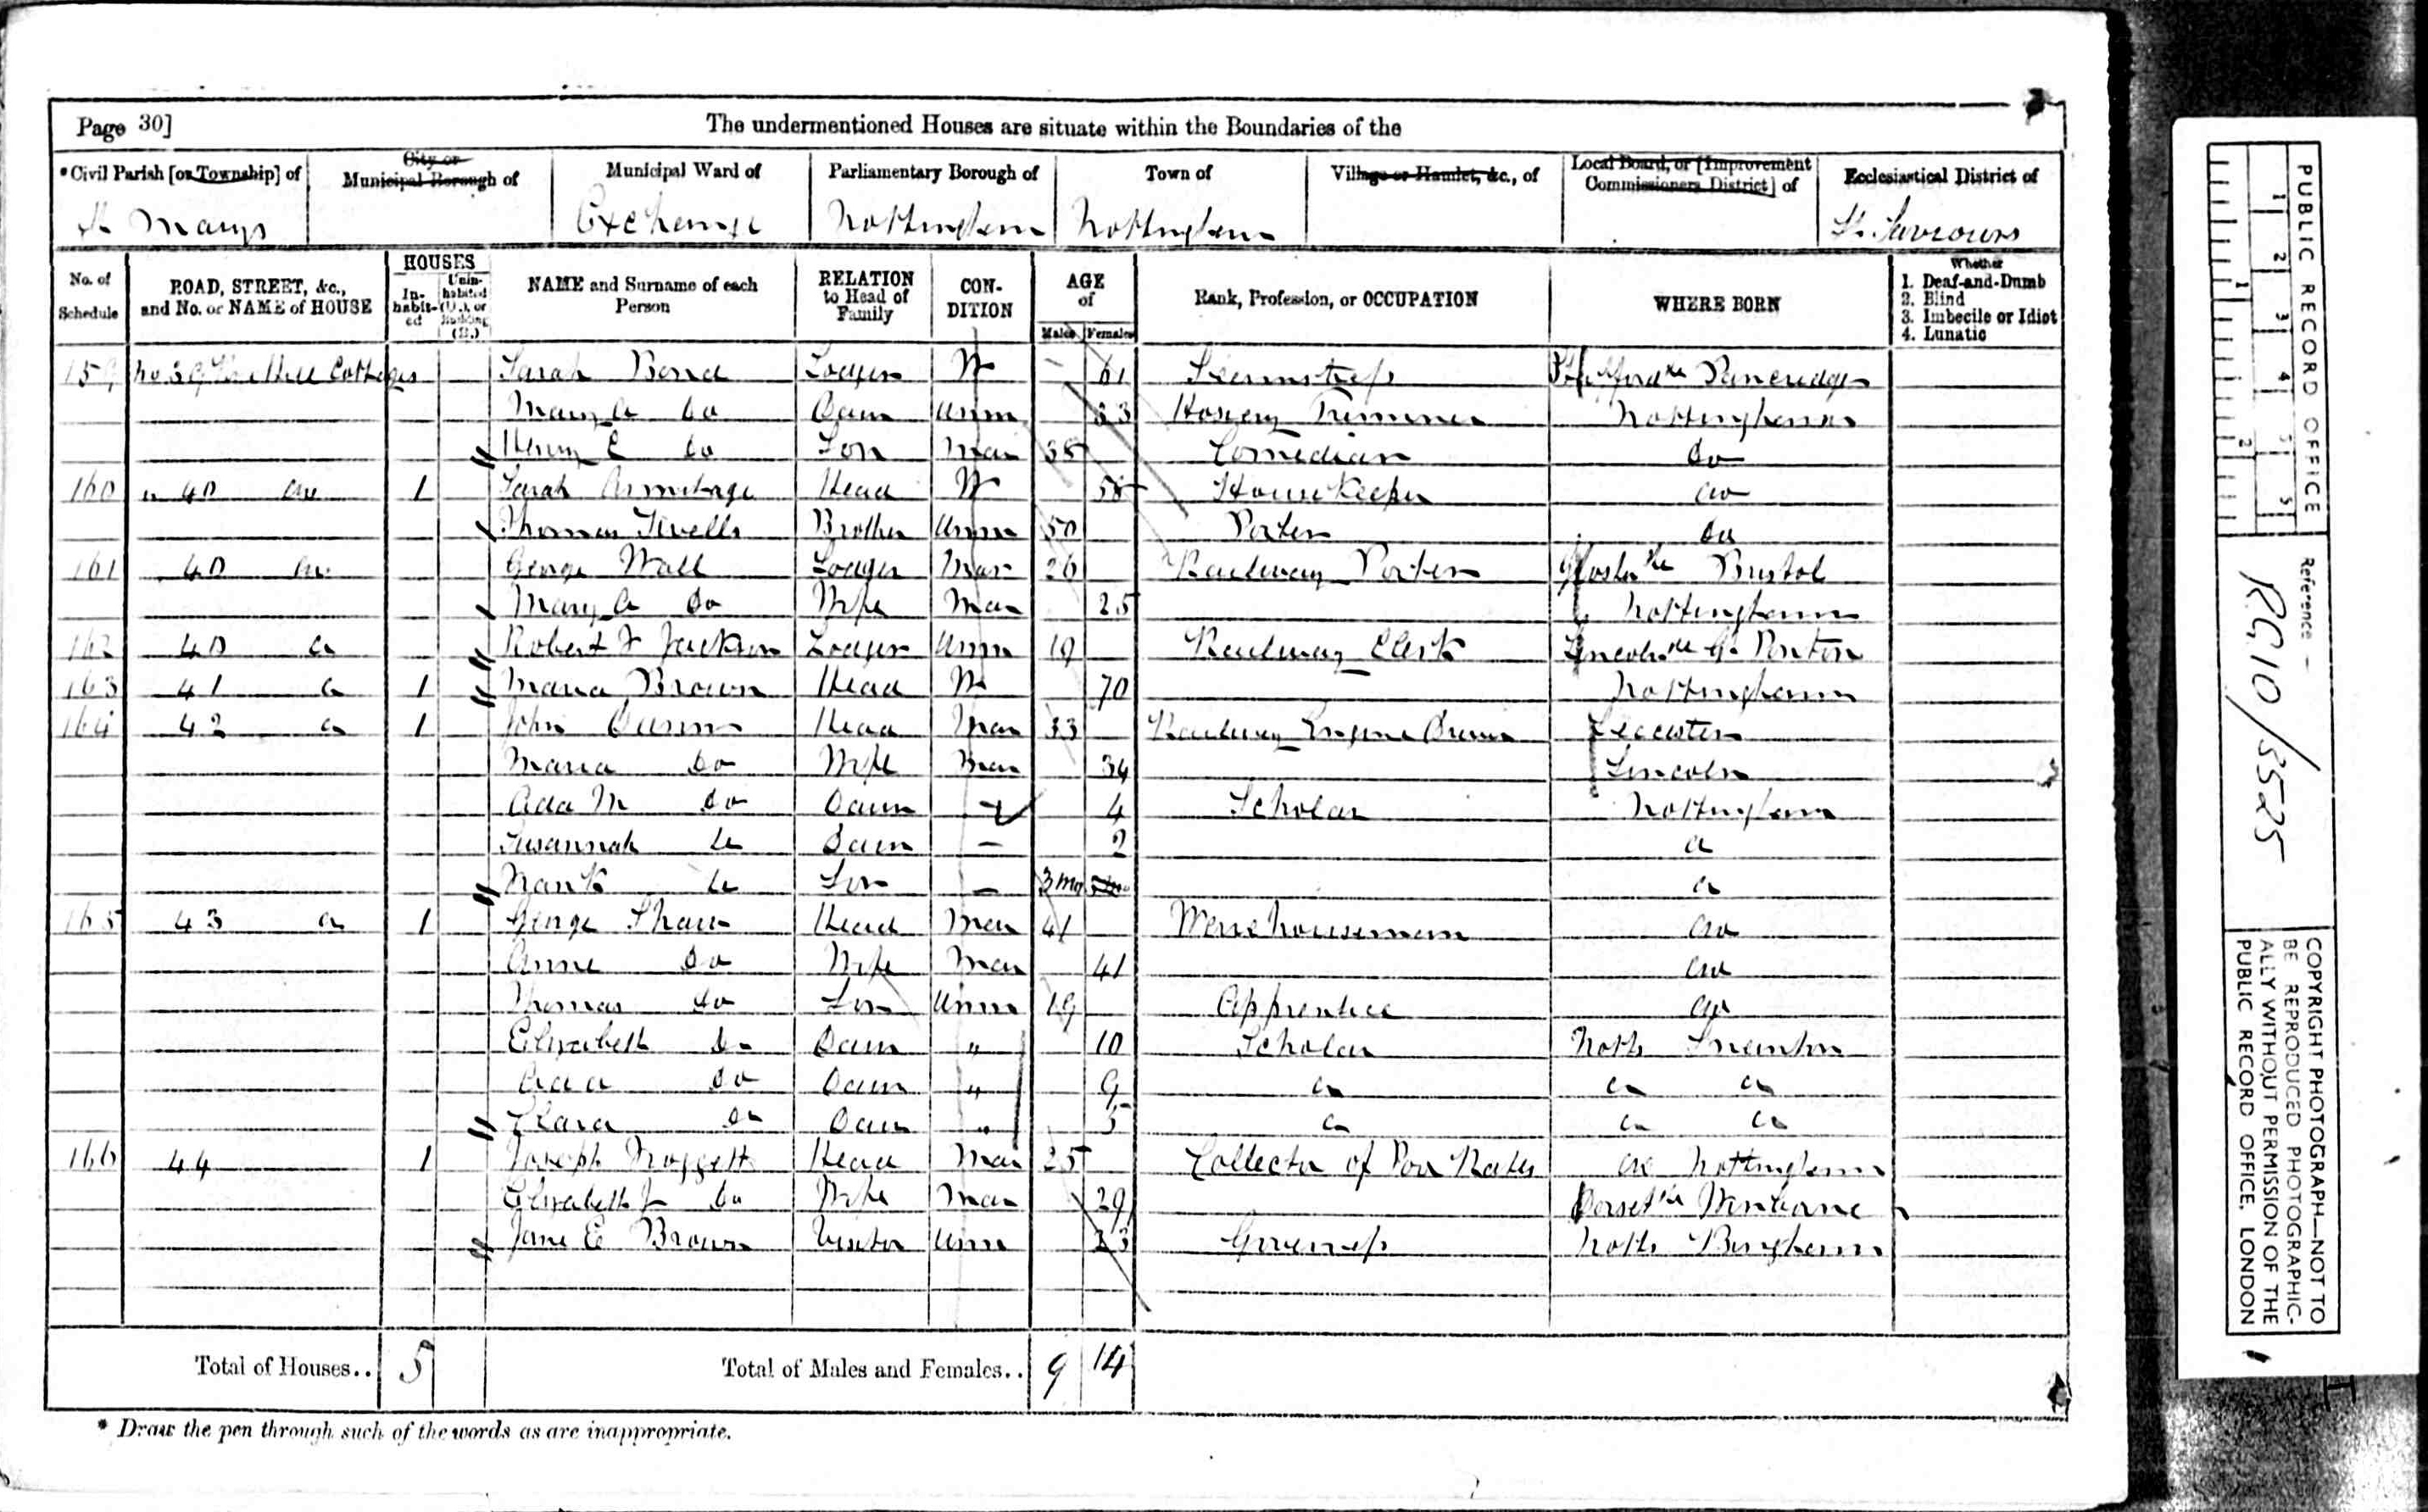 Page 30]
The undermentioned Houses are situate within the Boundaries of the
*Civil Parish [or Township] of
City or Municipal Borough of
Municipal Ward of
Parliamentary Borough of
Town of
Village or Hamlet, &c., of
Local Board, or [Improvement Commissioners District] of
Ecclesiastical District of
St Marys Exchange Nottingham Nottingham St. Saviours
No. of Schedule
ROAD, STREET, &c., and No. or NAME of HOUSE
HOUSES
In-habit-ed
Unin-habited (U.), or Building (B.)
NAME and Surname of each Person
RELATION to Head of Family
CON-DITION
AGE of
Males Females
Rank, Profession, or OCCUPATION
WHERE BORN
Whether
1. Deaf-and-Dumb
2. Blind
3. Imbecile or Idiot
4. Lunatic
159 No 39 Cottages Sarah Bond Lodger W 61 Seamstress
Mary A do Daur Unm 33 Hosiery Trimmer Nottingham
Henry E do Son Mar 38 Comedian do
160 " 40 do 1 Sarah Armitage Head W 58 Housekeeper do
Thomas Brother Unm 50 Porter do
161 40 do George Wall Lodger Mar 26 Railway Porter Glosshre Bristol
Mary A do Wife Mar 25 Nottingham
162 40 do Robert J Jackson Lodger Unm 19 Railway Clerk Lincolnshre G. Ponton
163 41 do 1 Maria Brown Head W 70 Nottingham
164 42 do 1 John Dunn Head Mar 33 Railway Engine Driver Leicester
Maria do Wife Mar 34 Lincoln
Ada M do Daur 4 Scholar Nottingham
Susannah do Daur - 2 do
Frank do Son - 3 mo do
165 43 do 1 George Shaw Head Mar 41 Warehouseman do
Anne do Wife Mar 41 do
Thomas do Son Unm 19 Apprentice do
Elizabeth do Daur " 10 Scholar Notts Sneinton
Ada do Daur " 9 do do do
Clara do Daur " 5 do do do
166 44 1 Joseph Head Mar 25 Collector of Poor Rates do Nottingham
Elizabeth J do Wife Mar 29 Dorsetshre Wimborne
Jane E Brown Visitor Unm 23 Governess Notts Bingham
Total of Houses.. 5 Total of Males and Females.. 9 14
* Draw the pen through such of the words as are inappropriate.
PUBLIC RECORD OFFICE
1 2 3 4 5 5
1 2
Reference –
RG10/3525
COPYRIGHT PHOTOGRAPH—NOT TO
BE REPRODUCED PHOTOGRAPHIC-
ALLY WITHOUT PERMISSION OF THE
PUBLIC RECORD OFFICE, LONDON